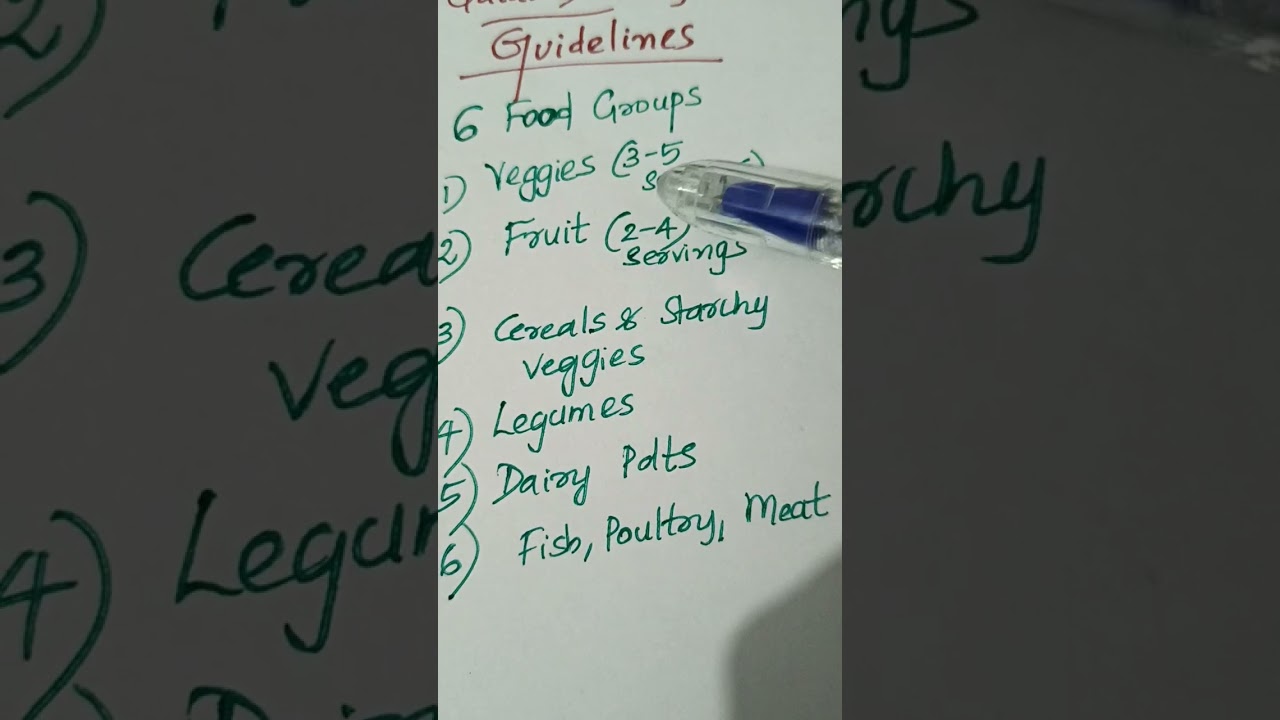 Guidelines
6 Food Groups
1) Veggies (3-5
2) Fruit (2-4)
Servings
3) Cereals & Starchy
Veggies
4) Legumes
5) Dairy Pdts
6) Fish, Poultry, Meat